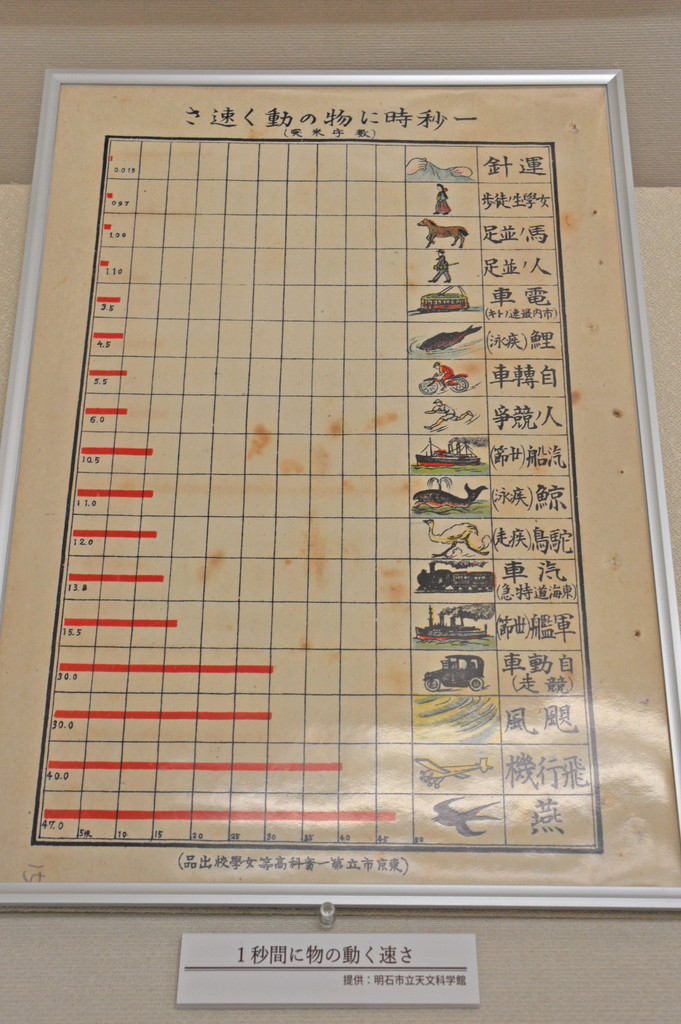 一秒時に物の動く速さ
(數字米突)
運針
0.015
女學生ノ徒歩
0.97
馬ノ並足
1.00
人ノ並足
1.10
電車
(市内最速ノトキ)
3.5
鯉(疾泳)
4.5
自轉車
5.5
人ノ競爭
6.0
汽船(廿節)
10.5
鯨(疾泳)
11.0
駝鳥(疾走)
12.0
汽車
(東海道特急)
13.8
軍艦(丗節)
15.5
自動車
(競走)
30.0
颶風
30.0
飛行機
40.0
燕
47.0
5米 10 15 20 25 30 35 40 45 50
(東京市立第一實科高等女學校出品)
1秒間に物の動く速さ
提供:明石市立天文科学館